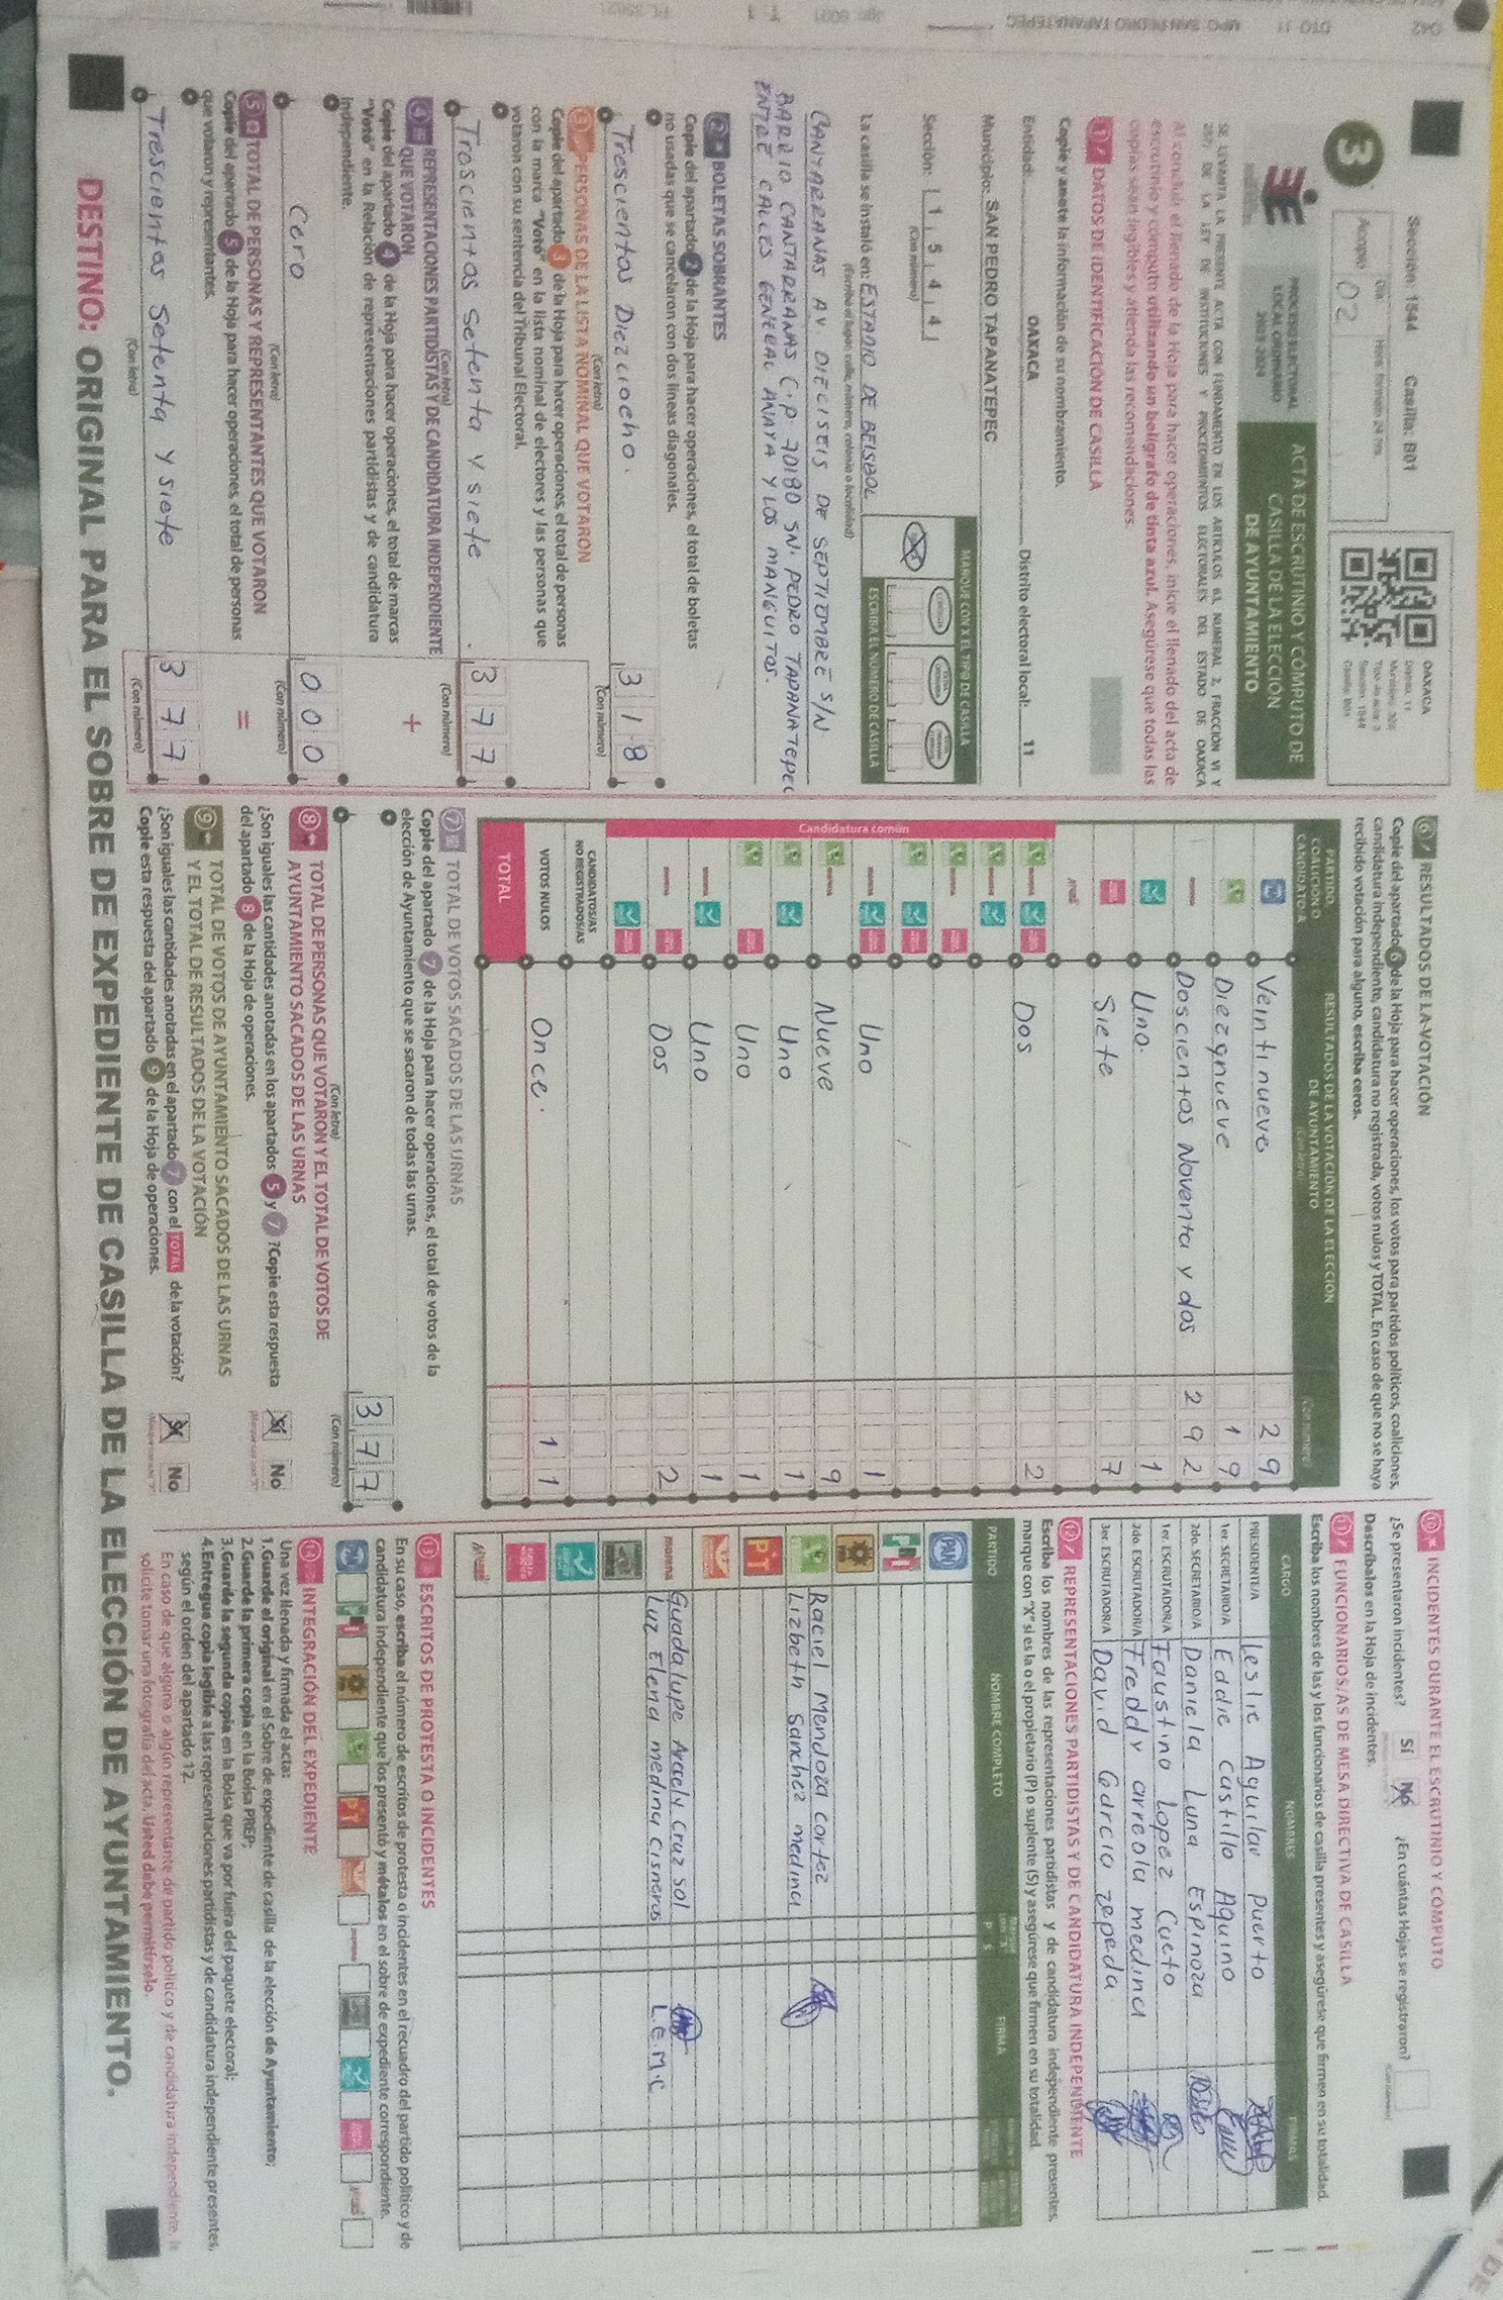 Sección: 1544 Casilla: B01
3
Acopio
Día
Hora. Formato 24 hrs
02
OAXACA
Sección: 1544
Casilla: B01
PROCESO ELECTORAL
LOCAL ORDINARIO
2023-2024
ACTA DE ESCRUTINIO Y CÓMPUTO DE
CASILLA DE LA ELECCIÓN
DE AYUNTAMIENTO
SE LEVANTA LA PRESENTE ACTA CON FUNDAMENTO EN LOS ARTÍCULOS 63, NUMERAL 2, FRACCIÓN VI Y
DE LA LEY DE INSTITUCIONES Y PROCEDIMIENTOS ELECTORALES DEL ESTADO DE OAXACA
Al concluir el llenado de la Hoja para hacer operaciones, inicie el llenado del acta de
escrutinio y cómputo utilizando un bolígrafo de tinta azul. Asegúrese que todas las
copias sean legibles y atienda las recomendaciones.
1 DATOS DE IDENTIFICACIÓN DE CASILLA
Copie y anote la información de su nombramiento.
Entidad: OAXACA Distrito electoral local: 11
Municipio: SAN PEDRO TAPANATEPEC
Sección: 1 5 4 4
(Con número)
MARQUE CON X EL TIPO DE CASILLA
ESCRIBA EL NÚMERO DE CASILLA
La casilla se instaló en: ESTADIO DE BEISBOL
(Escriba el lugar: calle, número, colonia o localidad)
CANTARRANAS AV DIECISEIS DE SEPTIEMBRE S/N
BARRIO CANTARRANAS C.P 70180 SN. PEDRO TAPANATEPEC
ENTRE CALLES GENERAL ANAYA Y LOS MANGUITOS.
2 BOLETAS SOBRANTES
Copie del apartado 2 de la Hoja para hacer operaciones, el total de boletas
no usadas que se cancelaron con dos líneas diagonales.
Trescientos Diezciocho. 3 1 8
(Con letra) (Con número)
3 PERSONAS DE LA LISTA NOMINAL QUE VOTARON
Copie del apartado 3 de la Hoja para hacer operaciones, el total de personas
con la marca "Votó" en la lista nominal de electores y las personas que
votaron con su sentencia del Tribunal Electoral.
Trescientas Setenta y siete. 3 7 7
(Con letra) (Con número)
4 REPRESENTACIONES PARTIDISTAS Y DE CANDIDATURA INDEPENDIENTE
QUE VOTARON
+
Copie del apartado 4 de la Hoja para hacer operaciones, el total de marcas
"Votó" en la Relación de representaciones partidistas y de candidatura
independiente.
Cero 0 0 0
(Con letra) (Con número)
5 TOTAL DE PERSONAS Y REPRESENTANTES QUE VOTARON
=
Copie del apartado 5 de la Hoja para hacer operaciones, el total de personas
que votaron y representantes.
Trescientas Setenta y siete 3 7 7
(Con letra) (Con número)
6 RESULTADOS DE LA VOTACIÓN
Copie del apartado 6 de la Hoja para hacer operaciones, los votos para partidos políticos, coaliciones,
candidatura independiente, candidatura no registrada, votos nulos y TOTAL. En caso de que no se haya
recibido votación para alguno, escriba ceros.
PARTIDO, COALICIÓN O CANDIDATO/A
RESULTADOS DE LA VOTACIÓN DE LA ELECCIÓN
DE AYUNTAMIENTO
(Con letra) (Con número)
Veintinueve 2 9
Diezynueve 1 9
Doscientos Noventa y dos 2 9 2
Uno. 1
Siete 7
Candidatura común
Dos 2
Uno 1
Nueve 9
Uno 1
Uno 1
Uno 1
Dos 2
CANDIDATOS/AS
NO REGISTRADOS/AS
VOTOS NULOS Once. 1 1
TOTAL
7 TOTAL DE VOTOS SACADOS DE LAS URNAS
Copie del apartado 7 de la Hoja para hacer operaciones, el total de votos de la
elección de Ayuntamiento que se sacaron de todas las urnas.
3 7 7
(Con letra) (Con número)
8 TOTAL DE PERSONAS QUE VOTARON Y EL TOTAL DE VOTOS DE
AYUNTAMIENTO SACADOS DE LAS URNAS
¿Son iguales las cantidades anotadas en los apartados 5 y 7 ?Copie esta respuesta
del apartado 8 de la Hoja de operaciones.
Sí No
9 TOTAL DE VOTOS DE AYUNTAMIENTO SACADOS DE LAS URNAS
Y EL TOTAL DE RESULTADOS DE LA VOTACIÓN
¿Son iguales las cantidades anotadas en el apartado 7 con el TOTAL de la votación?
Copie esta respuesta del apartado 9 de la Hoja de operaciones.
Sí No
10 INCIDENTES DURANTE EL ESCRUTINIO Y CÓMPUTO
¿Se presentaron incidentes? Sí No ¿En cuántas Hojas se registraron?
Descríbalos en la Hoja de incidentes.
11 FUNCIONARIOS/AS DE MESA DIRECTIVA DE CASILLA
Escriba los nombres de las y los funcionarios de casilla presentes y asegúrese que firmen en su totalidad.
CARGO NOMBRES FIRMAS
PRESIDENTE/A Leslie Aguilar Puerto
1er. SECRETARIO/A Eddie Castillo Aquino
2do. SECRETARIO/A Daniela Luna Espinoza
1er. ESCRUTADOR/A Faustino Lopez Cueto
2do. ESCRUTADOR/A Freddy arreola medina
3er. ESCRUTADOR/A David Garcia Zepeda
12 REPRESENTACIONES PARTIDISTAS Y DE CANDIDATURA INDEPENDIENTE
Escriba los nombres de las representaciones partidistas y de candidatura independiente presentes,
marque con "X" si es la o el propietario (P) o suplente (S) y asegúrese que firmen en su totalidad.
PARTIDO NOMBRE COMPLETO P S FIRMA
PAN
PRI
PT
Raciel Mendoza Cortez
Lizbeth Sanchez medina
morena
Guadalupe Arcely Cruz Sol
Luz Elena medina Cisneros L.E.M.C
13 ESCRITOS DE PROTESTA O INCIDENTES
En su caso, escriba el número de escritos de protesta o incidentes en el recuadro del partido político y de
candidatura independiente que los presentó y métalos en el sobre de expediente correspondiente.
14 INTEGRACIÓN DEL EXPEDIENTE
Una vez llenada y firmada el acta:
1.Guarde el original en el Sobre de expediente de casilla de la elección de Ayuntamiento;
2.Guarde la primera copia en la Bolsa PREP;
3.Guarde la segunda copia en la Bolsa que va por fuera del paquete electoral;
4.Entregue copia legible a las representaciones partidistas y de candidatura independiente presentes,
según el orden del apartado 12.
En caso de que alguna o algún representante de partido político y de candidatura independiente, le
solicite tomar una fotografía del acta, Usted debe permitírselo.
DESTINO: ORIGINAL PARA EL SOBRE DE EXPEDIENTE DE CASILLA DE LA ELECCIÓN DE AYUNTAMIENTO.